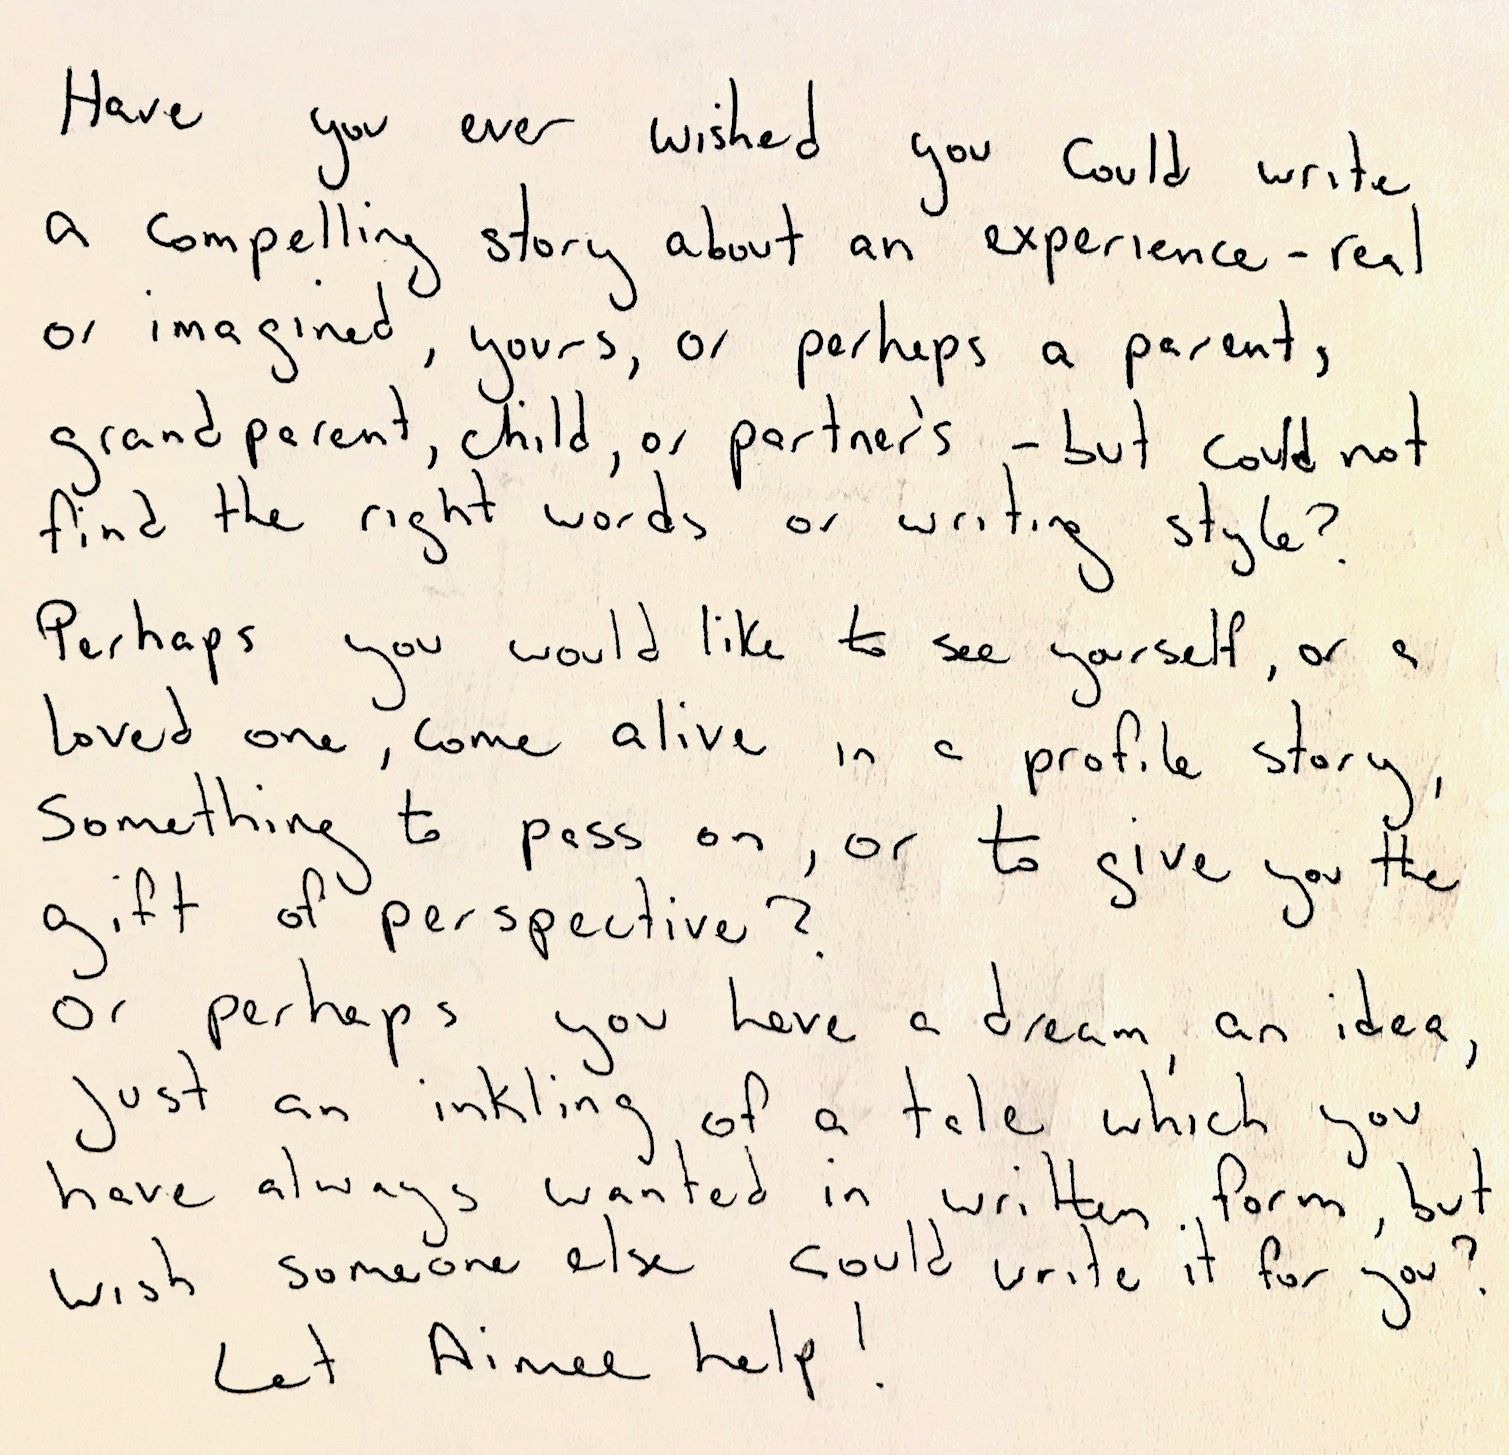 Have you ever wished you could write
a compelling story about an experience - real
or imagined, yours, or perhaps a parent,
grandparent, child, or partner's - but could not
find the right words or writing style?
Perhaps you would like to see yourself, or a
loved one, come alive in a profile story,
Something to pass on, or to give you the
gift of perspective?
Or perhaps you have a dream, an idea,
Just an inkling of a tale which you
have always wanted in written form, but
wish someone else could write it for you?
Let Aimee help!